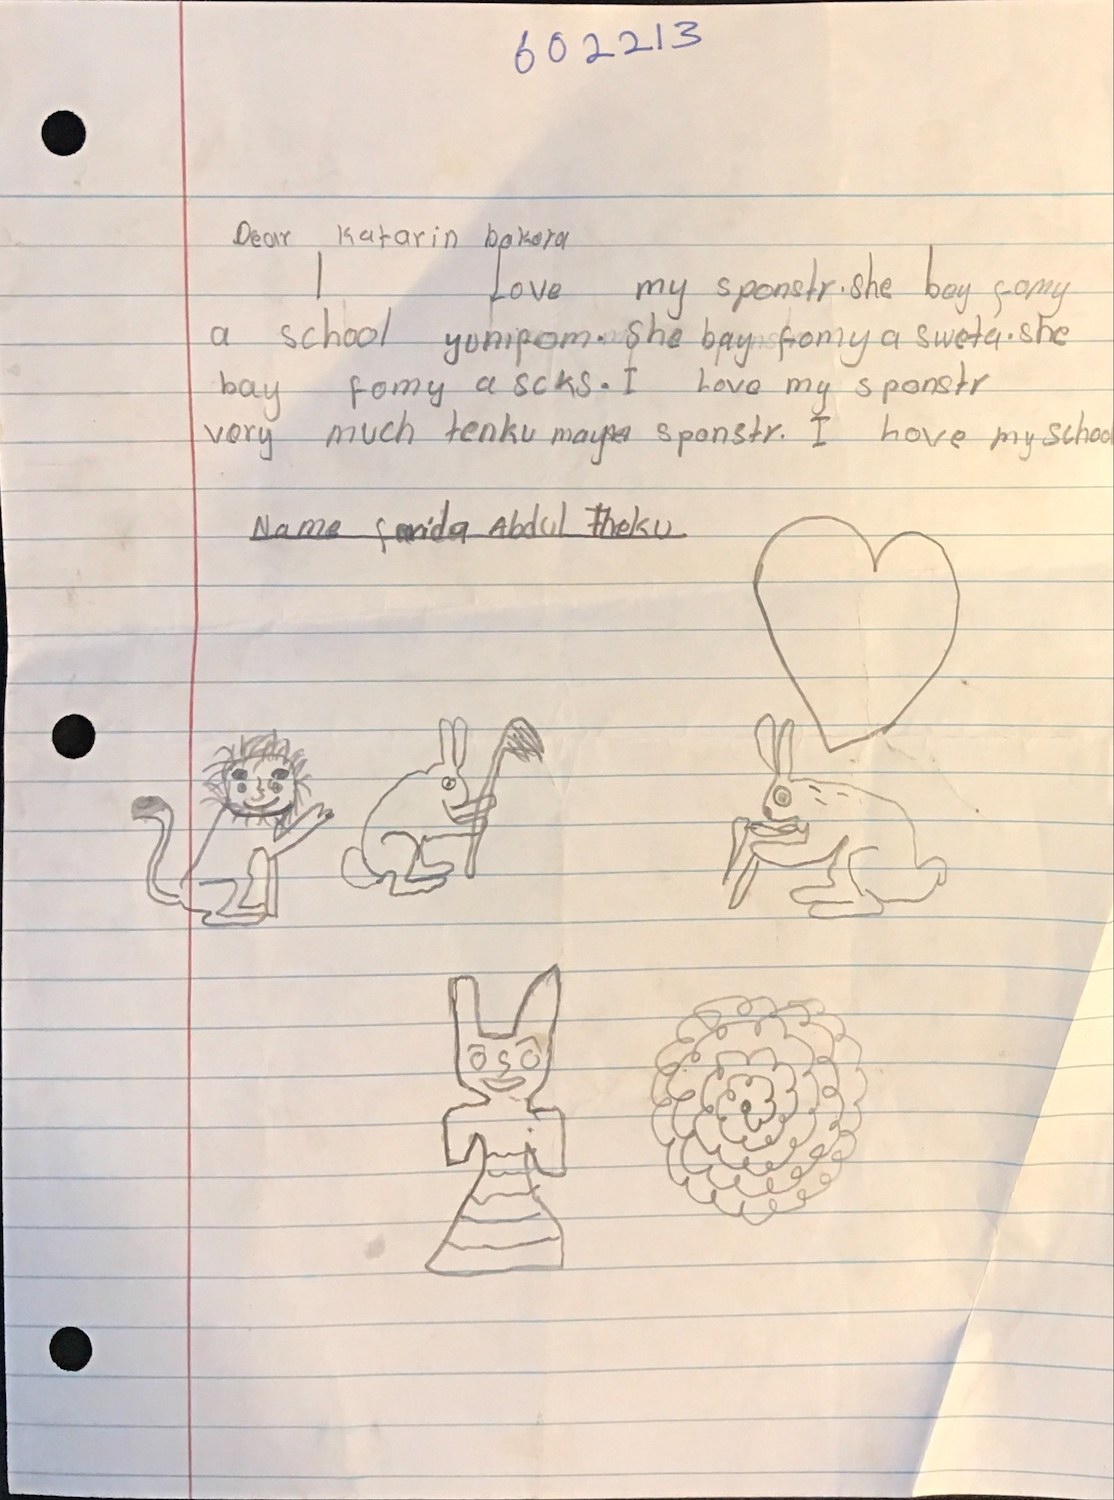 602213
Dear Katarin bakora
I Love my sponstr. she bay fomy
a school yunipom. She bay fomy a sweta. she
bay fomy a scks. I Love my sponstr
very much tenku may sponstr. I hove my school
Name farida Abdul Theku